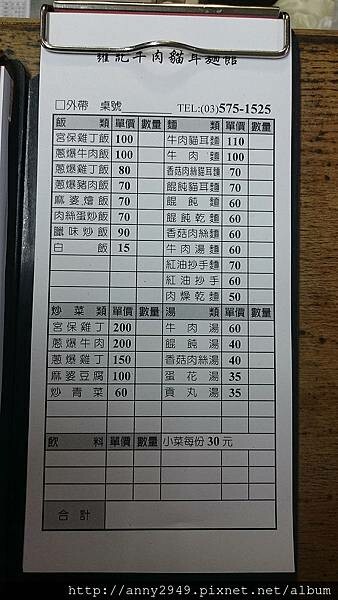 雍記牛肉貓耳麵館
□外帶 桌號 TEL:(03)575-1525
飯類 單價 數量 麵類 單價 數量
宮保雞丁飯 100 牛肉貓耳麵 110
蔥爆牛肉飯 100 牛肉麵 100
蔥爆雞丁飯 80 香菇肉絲貓耳麵 70
蔥爆豬肉飯 70 餛飩貓耳麵 70
麻婆燴飯 70 餛飩麵 60
肉絲蛋炒飯 70 餛飩乾麵 60
臘味炒飯 90 香菇肉絲麵 60
白飯 15 牛肉湯麵 60
紅油抄手麵 70
紅油抄手 60
肉燥乾麵 50
炒菜類 單價 數量 湯類 單價 數量
宮保雞丁 200 牛肉湯 60
蔥爆牛肉 200 餛飩湯 40
蔥爆雞丁 150 香菇肉絲湯 40
麻婆豆腐 100 蛋花湯 35
炒青菜 60 貢丸湯 35
飲料 單價 數量 小菜每份 30 元
合計
http://anny2949.pixnet.net/album